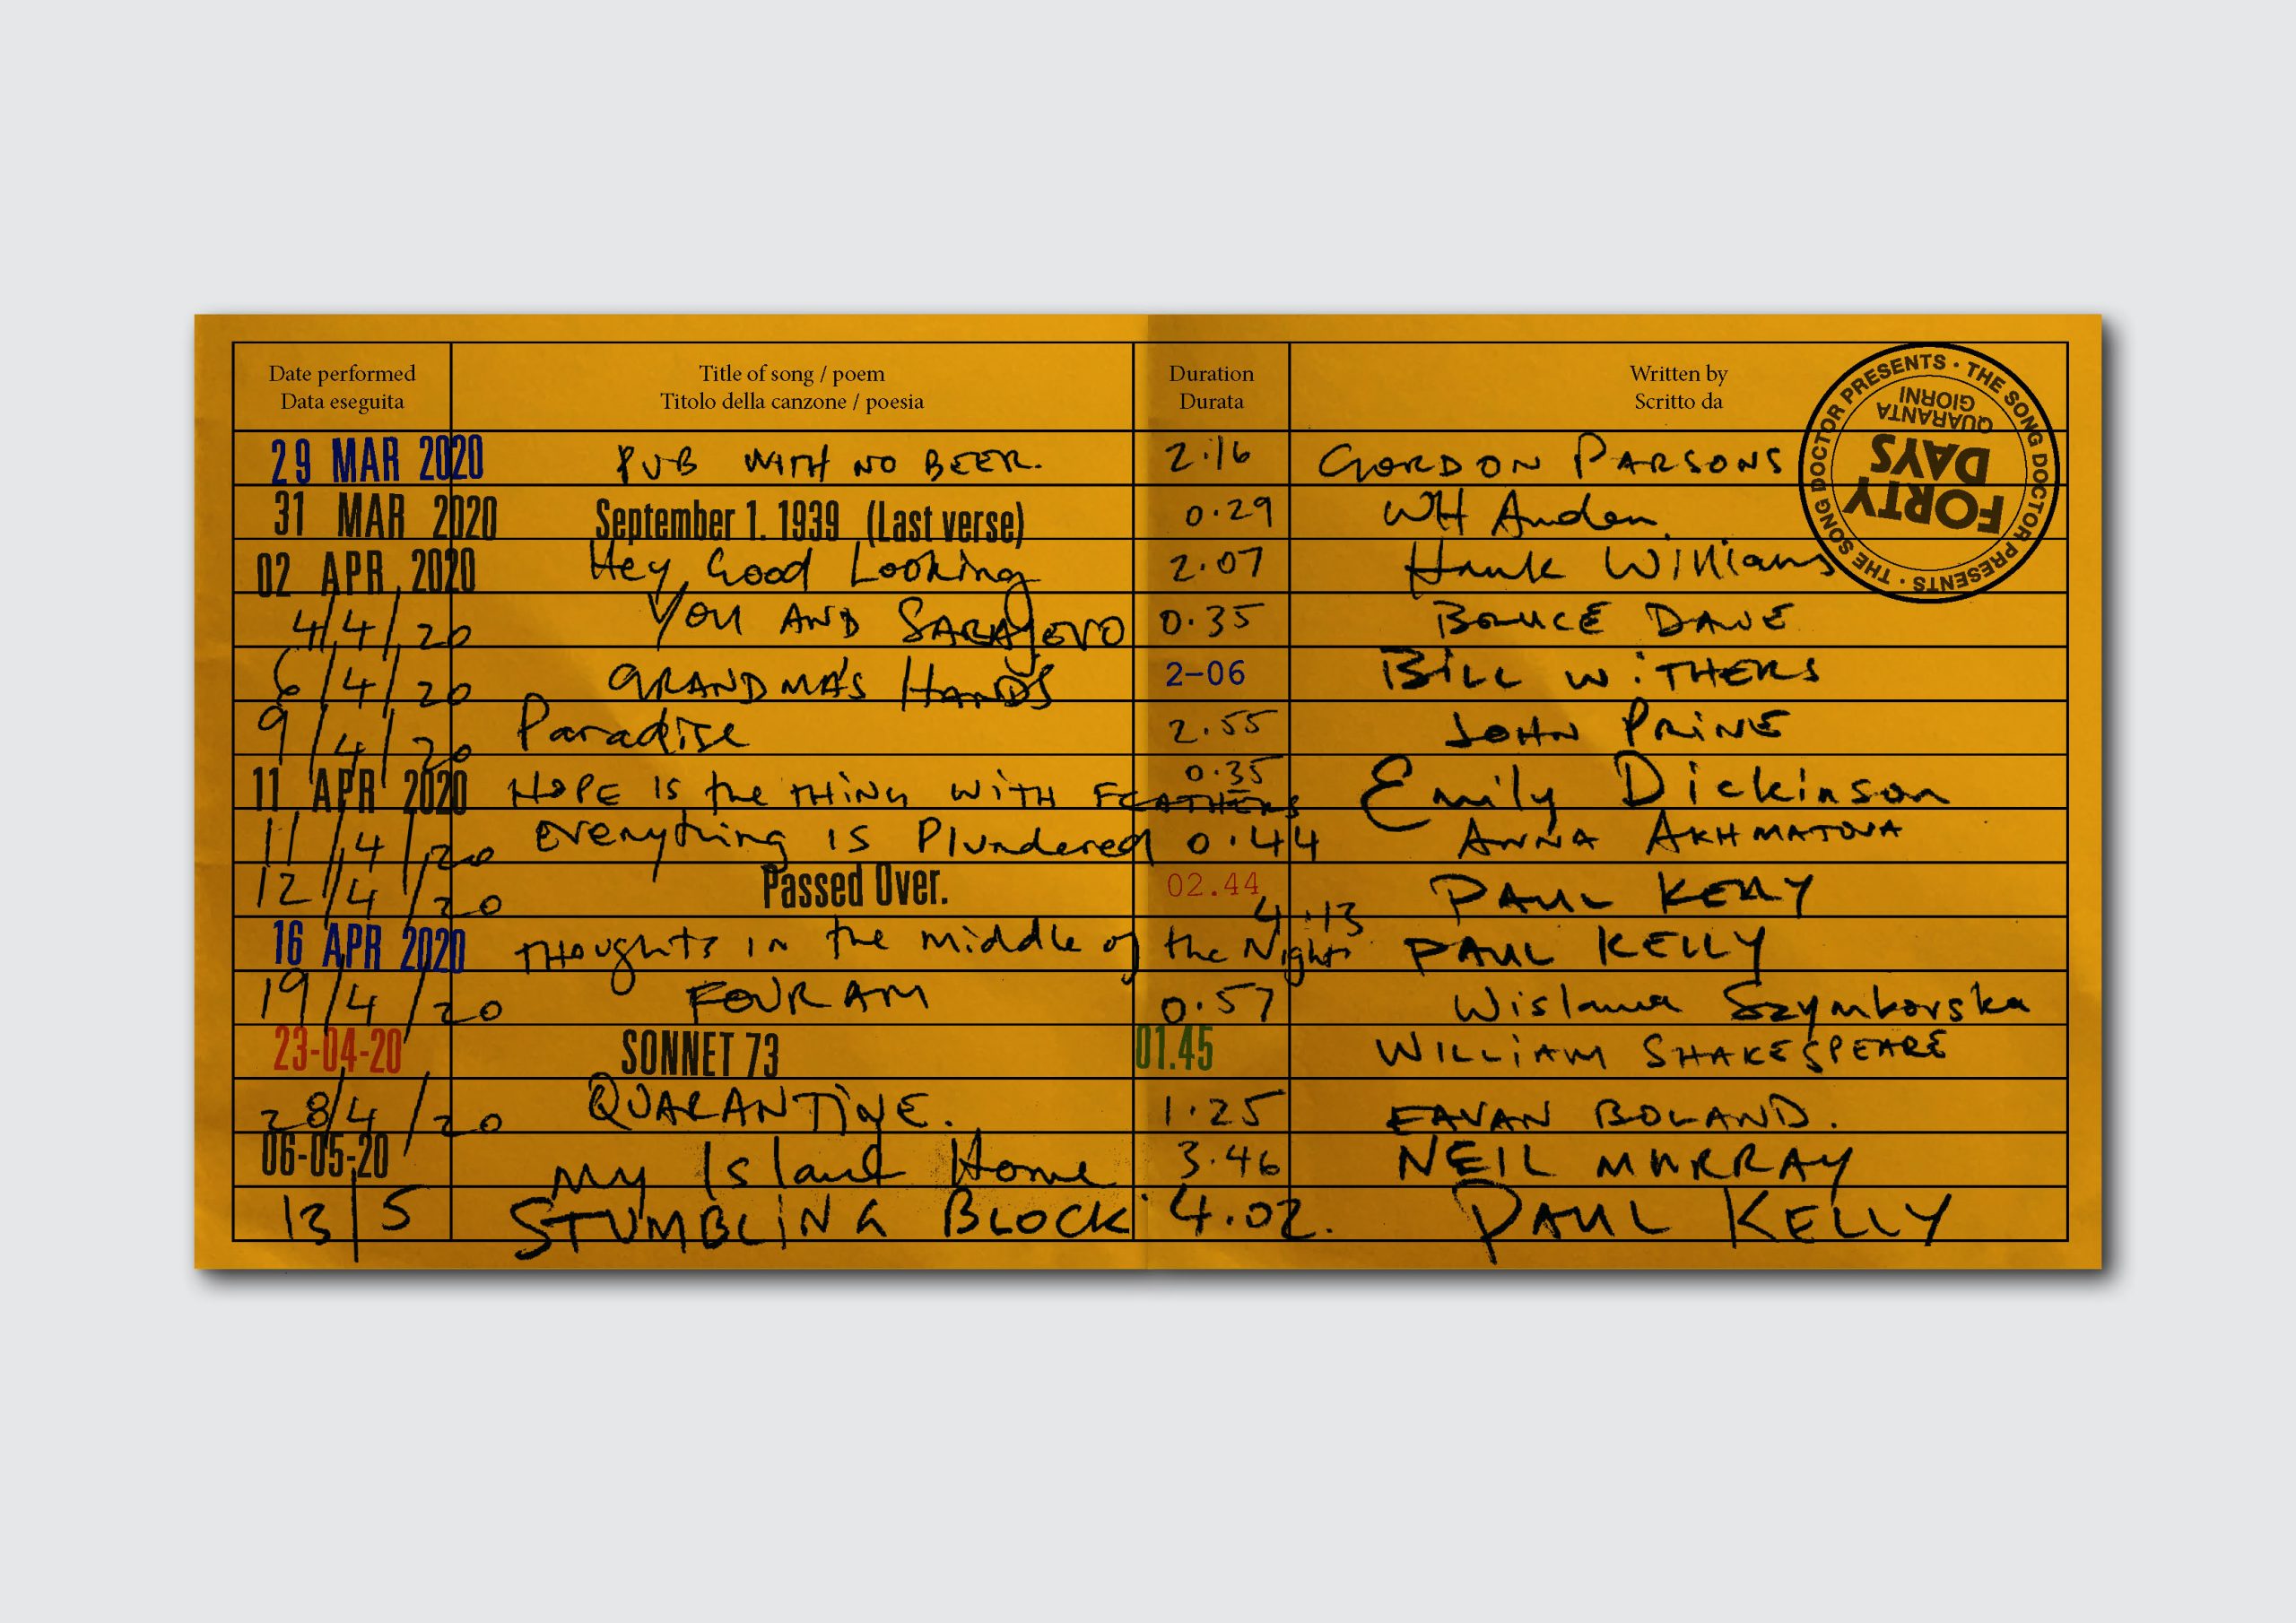 Date performed Title of song / poem Duration Written by
Data eseguita Titolo della canzone / poesia Durata Scritto da
THE SONG DOCTOR PRESENTS · THE SONG DOCTOR PRESENTS ·
FORTY
DAYS
QUARANTA
GIORNI
29 MAR 2020 PUB WITH NO BEER. 2.16 GORDON PARSONS
31 MAR 2020 September 1. 1939 (Last verse) 0.29 WH Auden
02 APR 2020 Hey Good Looking 2.07 Hank Williams
4/4/20 YOU AND SARAJEVO 0.35 BRUCE DAWE
6/4/20 GRANDMA'S HANDS 2-06 BILL WITHERS
9/4/20 Paradise 2.55 JOHN PRINE
11 APR 2020 HOPE IS the THING WITH FEATHERS 0.35 Emily Dickinson
11/4/20 Everything is Plundered 0.44 ANNA AKHMATOVA
12/4/20 Passed Over. 02.44 PAUL KELLY
16 APR 2020 THoughts in the middle of the Night 4.13 PAUL KELLY
19/4/20 FOUR AM 0.57 Wislawa Szymborska
23-04-20 SONNET 73 01.45 WILLIAM SHAKESPEARE
28/4/20 QUARANTINE. 1.25 EAVAN BOLAND.
06-05-20 My Island Home 3.46 NEIL MURRAY
13/5 STUMBLING BLOCK 4.02. PAUL KELLY